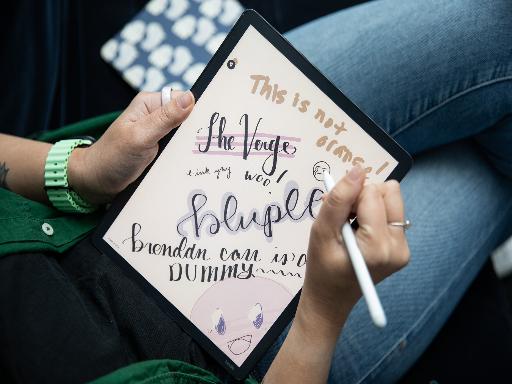 This is not
orange!
The Verge
e ink yay woo!
bluple
brendan carr is a
DUMMY